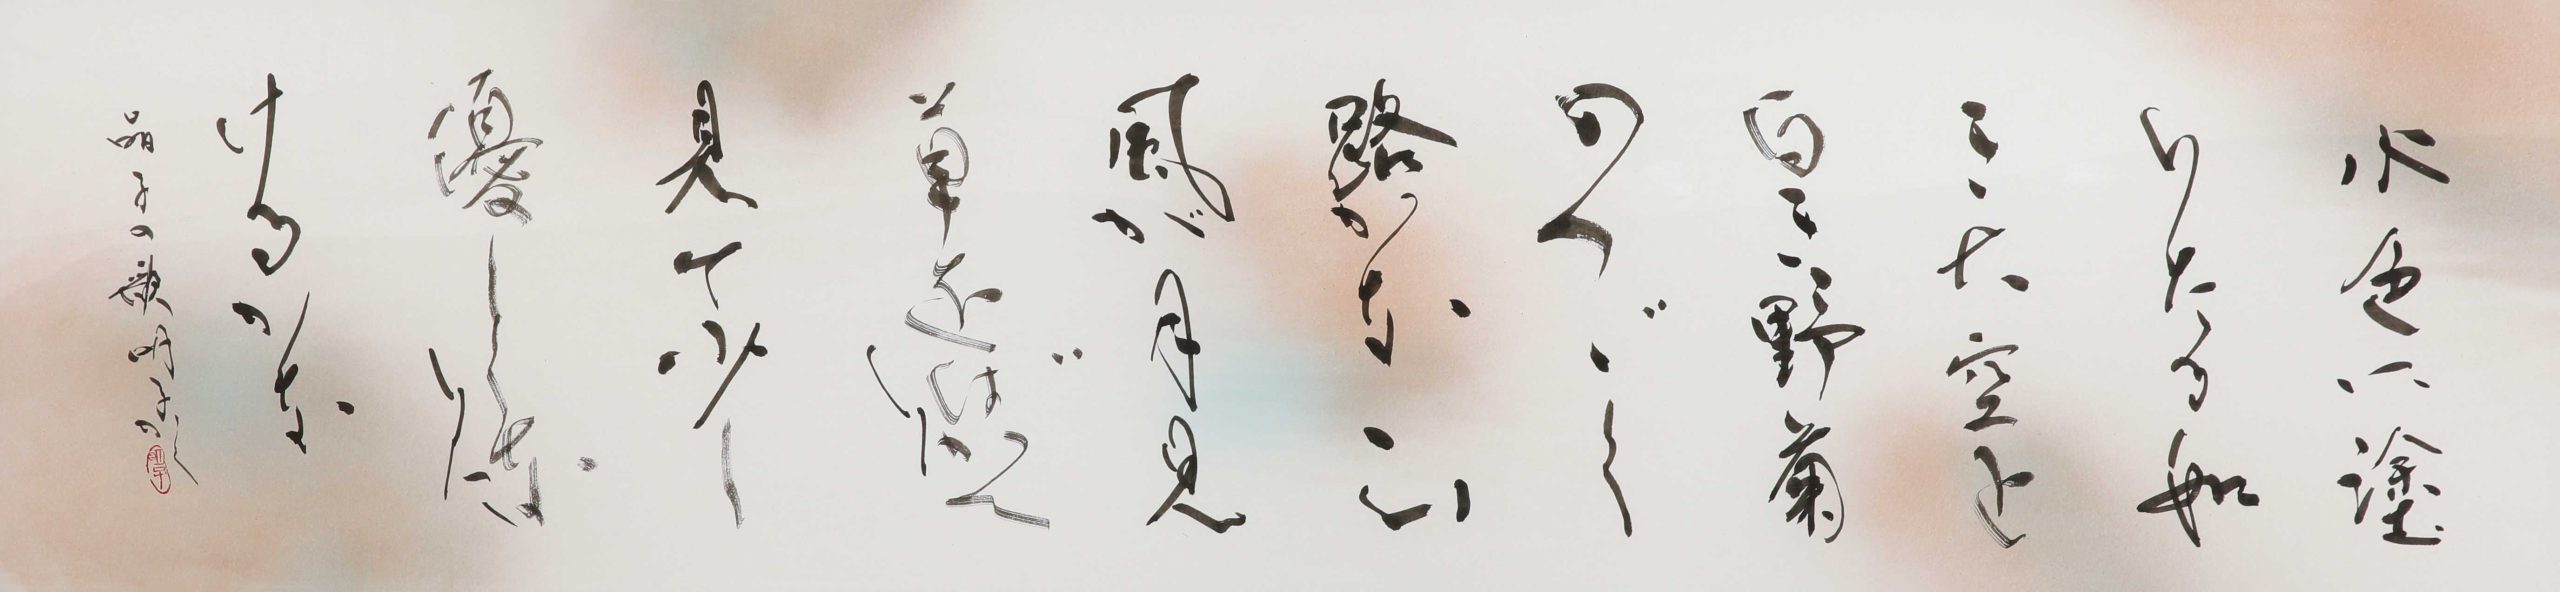 水色に塗
りたる如
き大空と
白き野菊
のつゞく
路かな 山
風が月見
草をば開く
見て少し
優しくなりに
けるかな
晶子の歌 明子かく